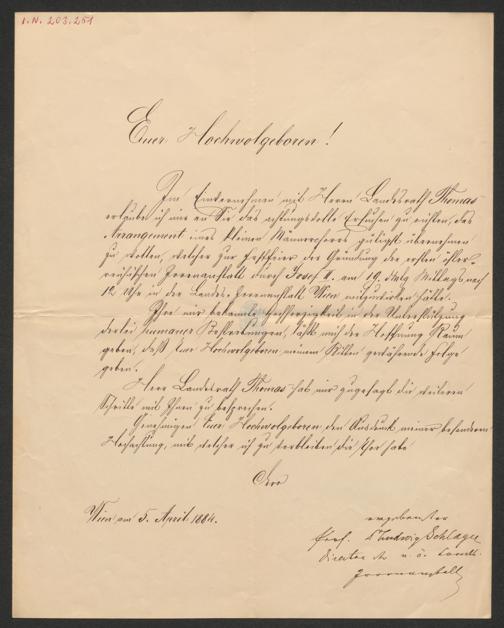 I.N. 203.251
Euer Hochwolgeboren!
Im Einvernehmen mit Herrn Landesrath Thomas
erlaube ich mir an Sie das achtungsvolle Ersuchen zu richten, das
Arrangement eines kleinen Männerchores gütigst übernehmen
zu wollen, welcher zur Festfeier der Gründung der ersten öster-
reichischen Irrenanstalt durch Josef II. am 19. Mittags nach
12 Uhr in der Landes-Irrenanstalt Wien mitzuwirken hätte.
Ihre mir bekannte in der Unterstützung
derlei humaner Bestrebungen, läßt mich der Hoffnung Raum
geben, daß Euer Hochwolgeboren meinem Bitten gewährende Folge
geben.
Herr Landesrath Thomas hat mir zugesagt die weiteren
Schritte mit Ihnen zu besprechen.
Genehmigen Euer Hochwolgeboren den Ausdruck meiner besonderen
Hochachtung, mit welcher ich zu verbleiben die Ehre habe
Wien am 5. April 1884.
ergebenster
Prof. Dr Ludwig Schlager
Director der n. ö. Landes-
Irrenanstalt